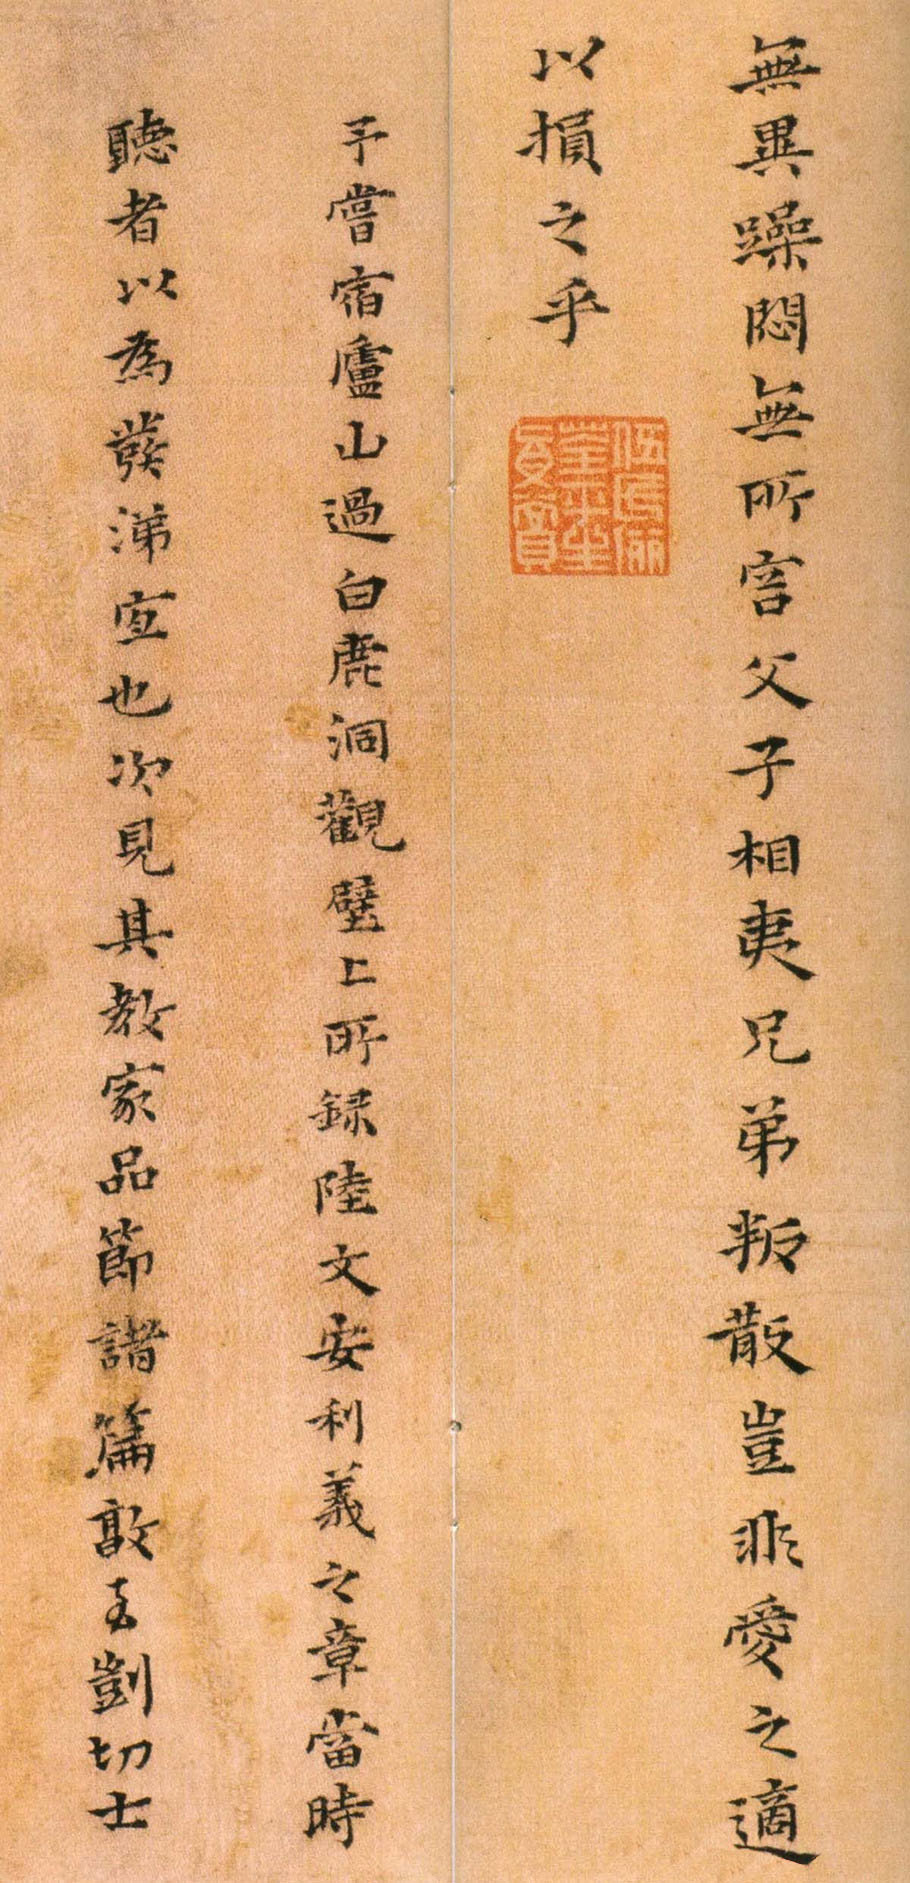 無異躁悶無所容父子相夷兄弟叛散豈非愛之適
以損之乎
伍氏儷荃平生真賞
予嘗宿廬山過白鹿洞觀壁上所録陸文安利義之章當時
聽者以為發涕宜也次見其教家品節諸篇敦至剴切士